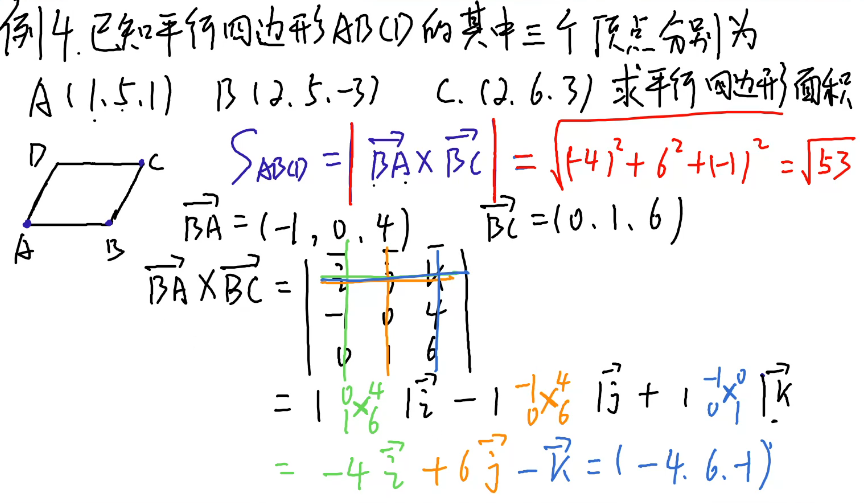 例4.已知平行四边形ABCD的其中三个顶点分别为
A(1.5.1) B(2.5.-3) C.(2.6.3) 求平行四边形面积
D C
A B
S_{ABCD} = |\overrightarrow{BA} × \overrightarrow{BC}| = \sqrt{(-4)^2+6^2+(-1)^2} = \sqrt{53}
\overrightarrow{BA} = (-1, 0. 4) \overrightarrow{BC} = (0. 1. 6)
\overrightarrow{BA} × \overrightarrow{BC} = | \vec{i} \vec{j} \vec{k} |
| -1 0 4 |
| 0 1 6 |
= | 0 4 | \vec{i} - | -1 4 | \vec{j} + | -1 0 | \vec{k}
| 1 6 | | 0 6 | | 0 1 |
= -4\vec{i} + 6\vec{j} - \vec{k} = (-4. 6. -1)